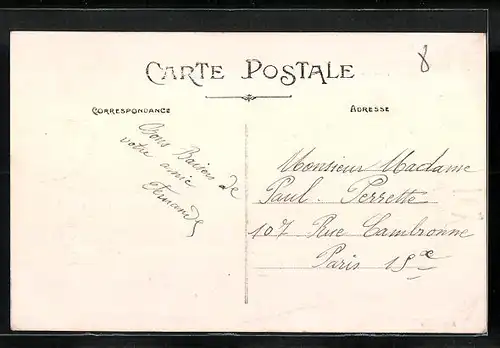 8
CARTE POSTALE
CORRESPONDANCE
ADRESSE
Bons Baisers de
votre amie
Fernande
Monsieur Madame
Paul Perrette
107 Rue Cambronne
Paris 15e